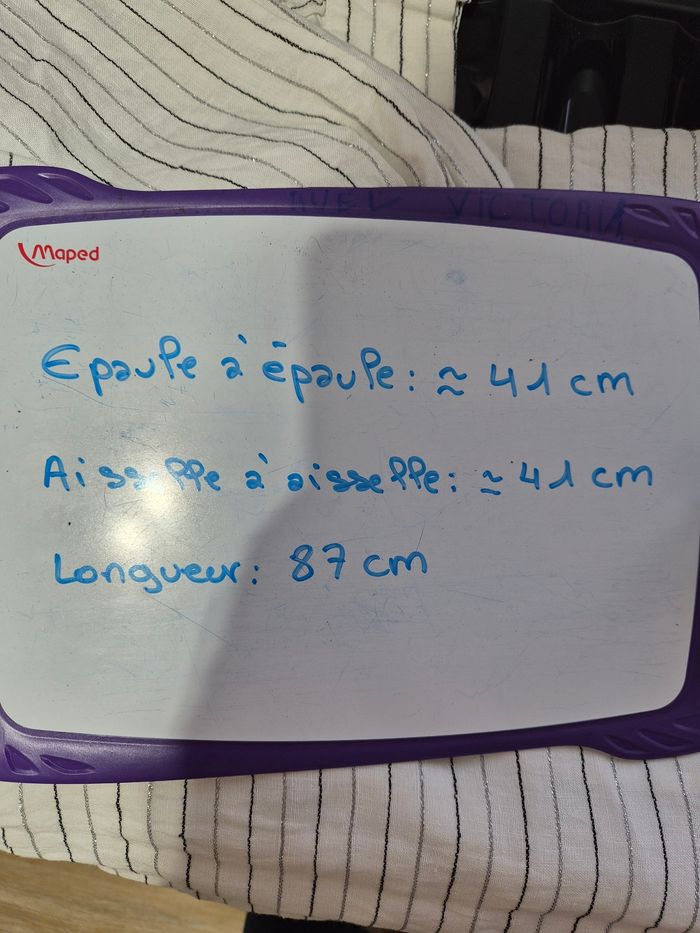 RUEL VICTORIA
Maped
Epaule à épaule : ≈ 41 cm
Aisselle à aisselle : ≈ 41 cm
Longueur : 87 cm